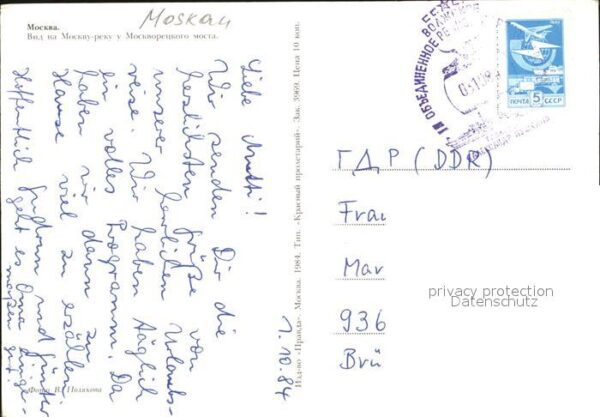 Moskau
Москва.
Вид на Москву-реку у Москворецкого моста.
Liebe Mutti!
Wir senden Dir die
herzlichsten Grüße von
unserer herrlichen Urlaubs-
reise. Wir haben täglich
ein volles Programm. Da
haben wir dann zu
Hause viel zu erzählen.
Hoffentlich geht es Oma
einige-
maßen gut.
1.10.84
Фото В. Полякова
Изд-во «Правда». Москва. 1984. Тип. «Красный пролетарий». Зак. 3969. Цена 10 коп.
ОБЪЕДИНЕННОЕ РЕ
ВОЛЖСКОЕ
ПОЧТА 5 СССР
ГДР (DDR)
Frau
Mar
936
Brü
privacy protection
Datenschutz